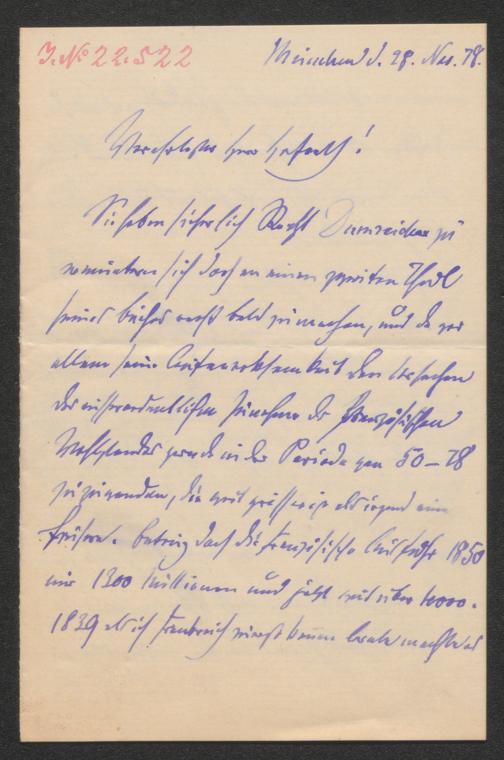 I. No 22.522
München d. 28. Nov. 78.
Verehrtester Herr Hofrath!
Sie haben sicherlich Recht Dumreicher zu
ermuntern sich doch an einen zweiten Theil
seines Buches recht bald zu machen, und da vor
allem seine Aufmerksamkeit den Ursachen
der außerordentlichen Zunahme des französischen
Wohlstandes gerade in der Periode von 50–78
zuzuwenden, die weit größer ist als irgend eine
frühere. Betrug doch die französische Ausfuhr 1850
nur 1300 Millionen und jetzt weit über 4000.
1839 als ich Frankreich zuerst kennen lernte machte es